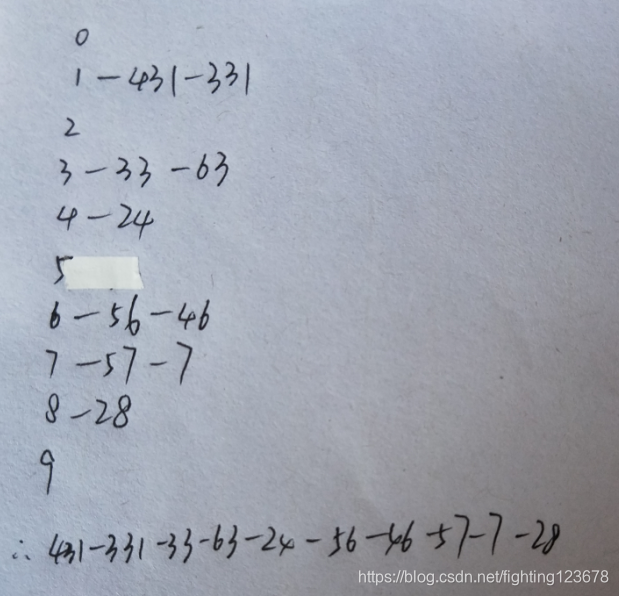 0
1-431-331
2
3-33-63
4-24
5
6-56-46
7-57-7
8-28
9
∴ 431-331-33-63-24-56-46-57-7-28
https://blog.csdn.net/fighting123678